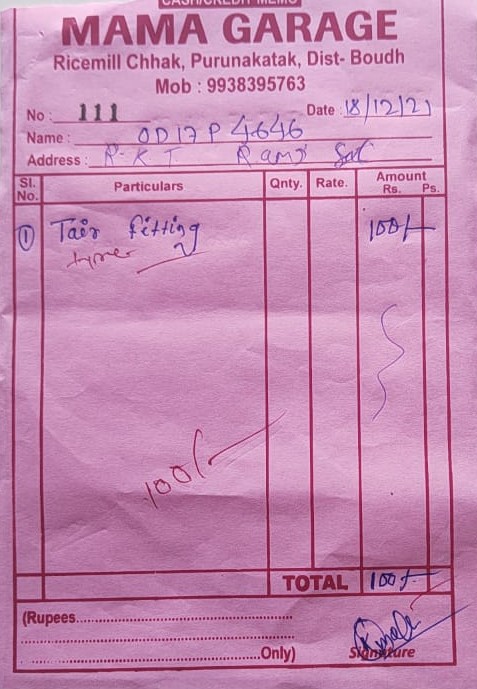 CASH/CREDIT MEMO
MAMA GARAGE
Ricemill Chhak, Purunakatak, Dist- Boudh
Mob : 9938395763
No : 111 Date : 18/12/21
Name : OD17P4646
Address : R.K T
Sl. No. Particulars Qnty. Rate. Amount Rs. Ps.
① Tair fitting 100/-
100/-
TOTAL 100/-
(Rupees
Only)
Signature